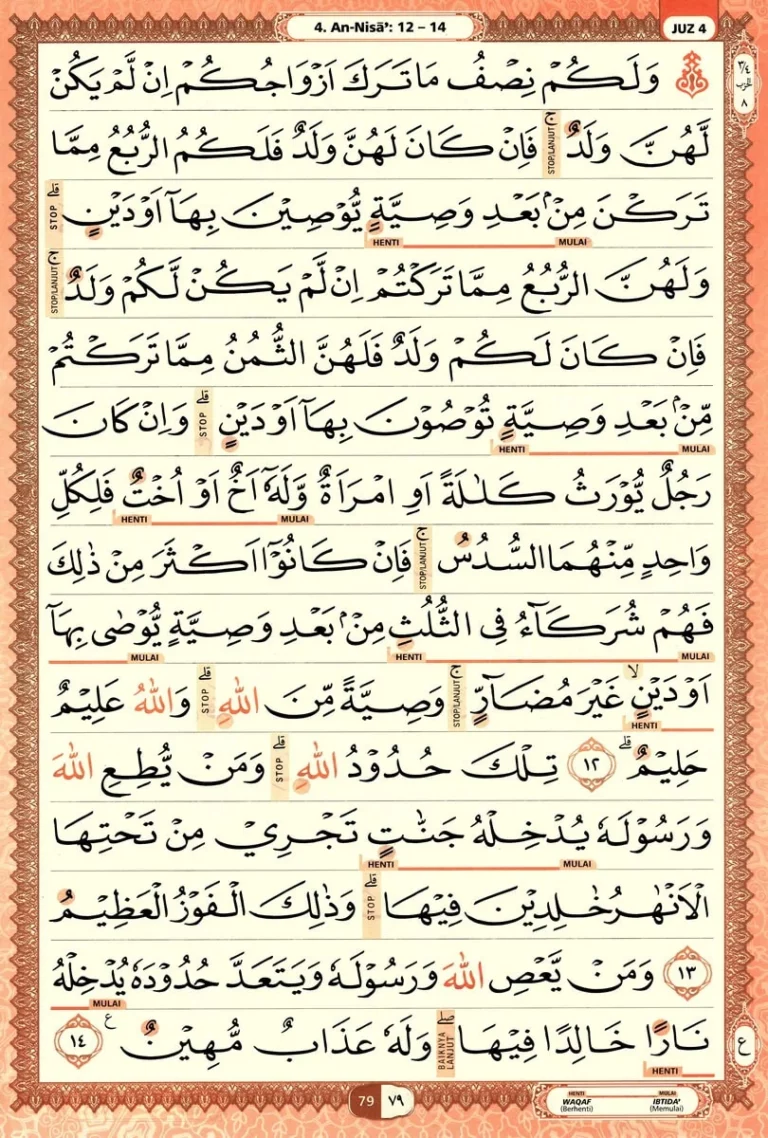 4. An-Nisā': 12 – 14
JUZ 4
٣/٤
الحزب
٨
وَلَكُمْ نِصْفُ مَا تَرَكَ اَزْوَاجُكُمْ اِنْ لَّمْ يَكُنْ
لَّهُنَّ وَلَدٌ ۚ فَاِنْ كَانَ لَهُنَّ وَلَدٌ فَلَكُمُ الرُّبُعُ مِمَّا
STOP/LANJUT
تَرَكْنَ مِنْۢ بَعْدِ وَصِيَّةٍ يُّوْصِيْنَ بِهَآ اَوْ دَيْنٍ ۗ
STOP
HENTI MULAI
وَلَهُنَّ الرُّبُعُ مِمَّا تَرَكْتُمْ اِنْ لَّمْ يَكُنْ لَّكُمْ وَلَدٌ ۚ
STOP/LANJUT
فَاِنْ كَانَ لَكُمْ وَلَدٌ فَلَهُنَّ الثُّمُنُ مِمَّا تَرَكْتُمْ
مِّنْۢ بَعْدِ وَصِيَّةٍ تُوْصُوْنَ بِهَآ اَوْ دَيْنٍ ۗ وَاِنْ كَانَ
STOP
HENTI MULAI
رَجُلٌ يُّوْرَثُ كَلٰلَةً اَوِ امْرَاَةٌ وَّلَهٗٓ اَخٌ اَوْ اُخْتٌ فَلِكُلِّ
HENTI MULAI
وَاحِدٍ مِّنْهُمَا السُّدُسُ ۚ فَاِنْ كَانُوْٓا اَكْثَرَ مِنْ ذٰلِكَ
STOP/LANJUT
فَهُمْ شُرَكَاۤءُ فِى الثُّلُثِ مِنْۢ بَعْدِ وَصِيَّةٍ يُّوْصٰى بِهَآ
MULAI HENTI MULAI
اَوْ دَيْنٍ ۙ غَيْرَ مُضَاۤرٍّ ۚ وَصِيَّةً مِّنَ اللّٰهِ ۗ وَاللّٰهُ عَلِيْمٌ
STOP STOP/LANJUT
HENTI
حَلِيْمٌ ۗ ١٢ تِلْكَ حُدُوْدُ اللّٰهِ ۗ وَمَنْ يُّطِعِ اللّٰهَ
STOP
وَرَسُوْلَهٗ يُدْخِلْهُ جَنّٰتٍ تَجْرِيْ مِنْ تَحْتِهَا
HENTI MULAI
الْاَنْهٰرُ خٰلِدِيْنَ فِيْهَا ۗ وَذٰلِكَ الْفَوْزُ الْعَظِيْمُ
STOP
١٣ وَمَنْ يَّعْصِ اللّٰهَ وَرَسُوْلَهٗ وَيَتَعَدَّ حُدُوْدَهٗ يُدْخِلْهُ
MULAI
نَارًا خَالِدًا فِيْهَا ۖ وَلَهٗ عَذَابٌ مُّهِيْنٌ ࣖ ١٤
BAIKNYA LANJUT
HENTI
ع
79 ٧٩
HENTI MULAI
WAQAF IBTIDA'
(Berhenti) (Memulai)